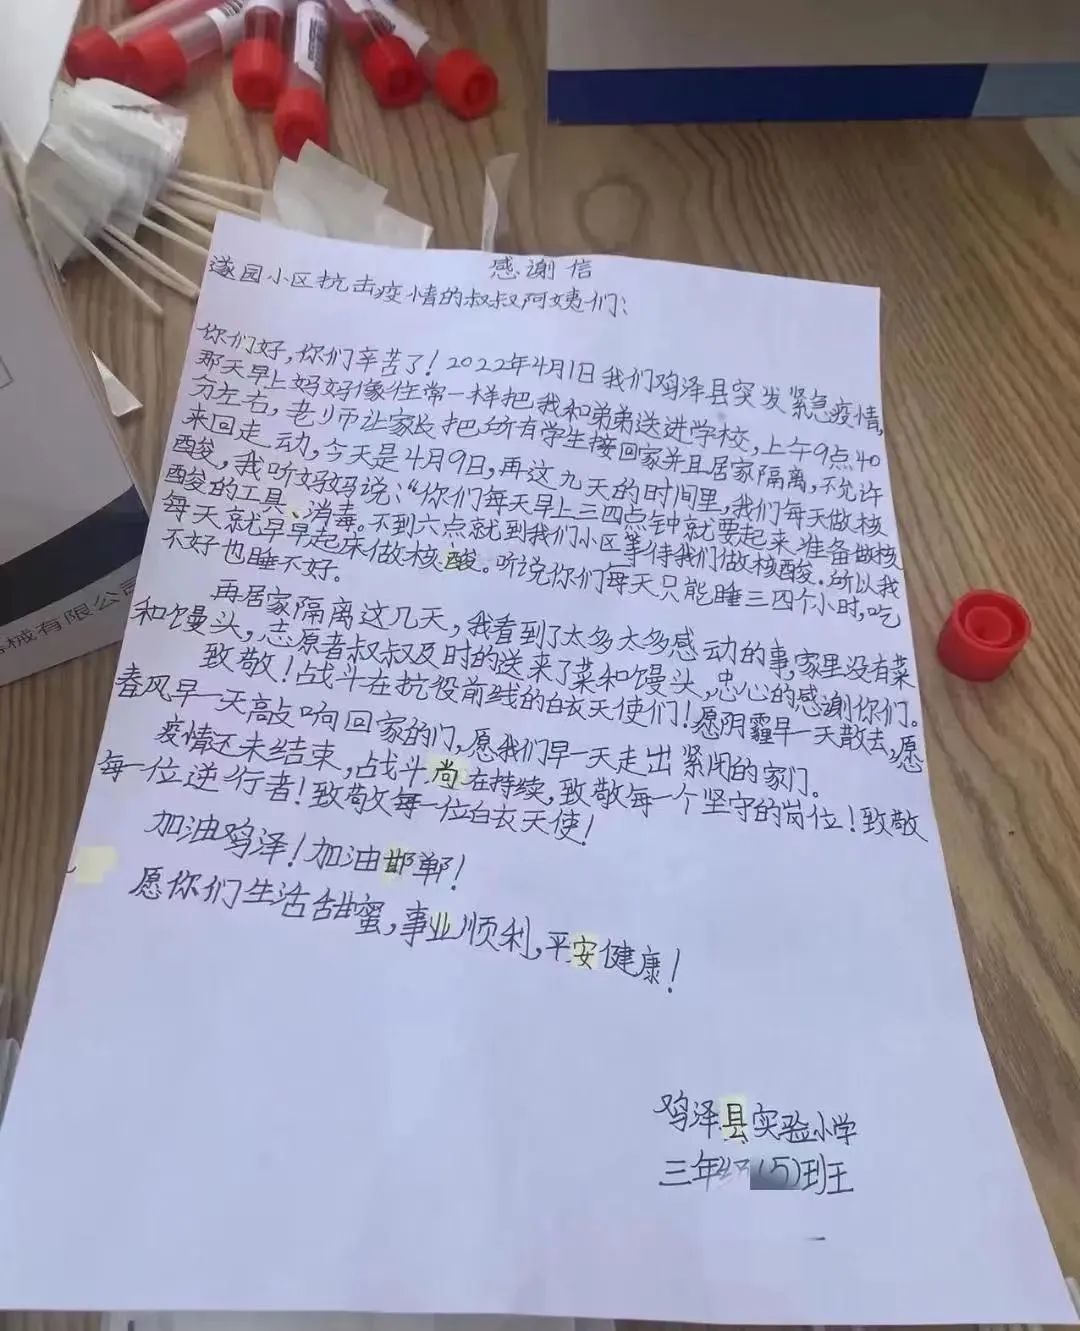 感谢信
遂园小区抗击疫情的叔叔阿姨们:
你们好,你们辛苦了!2022年4月1日我们鸡泽县突发紧急疫情,
那天早上妈妈像往常一样把我和弟弟送进学校,上午9点40
分左右,老师让家长把所有学生接回家并且居家隔离,不允许
来回走动,今天是4月9日,再这九天的时间里,我们每天做核
酸,我听妈妈说:“你们每天早上三四点钟就要起来准备做核
酸的工具、消毒。不到六点就到我们小区等待我们做核酸.所以我
每天就早早起床做核酸。听说你们每天只能睡三四个小时,吃
不好也睡不好.
再居家隔离这几天,我看到了太多太多感动的事,家里没有菜
和馒头,志愿者叔叔及时的送来了菜和馒头,忠心的感谢你们。
致敬!战斗在抗役前线的白衣天使们!愿阴霾早一天散去,愿
春风早一天敲响回家的们,愿我们早一天走出紧闭的家门。
疫情还未结束,战斗尚在持续,致敬每一个坚守的岗位!致敬
每一位逆行者!致敬每一位白衣天使!
加油鸡泽!加油邯郸!
愿你们生活甜蜜,事业顺利,平安健康!
鸡泽县实验小学
三年级(5)班
械有限公司